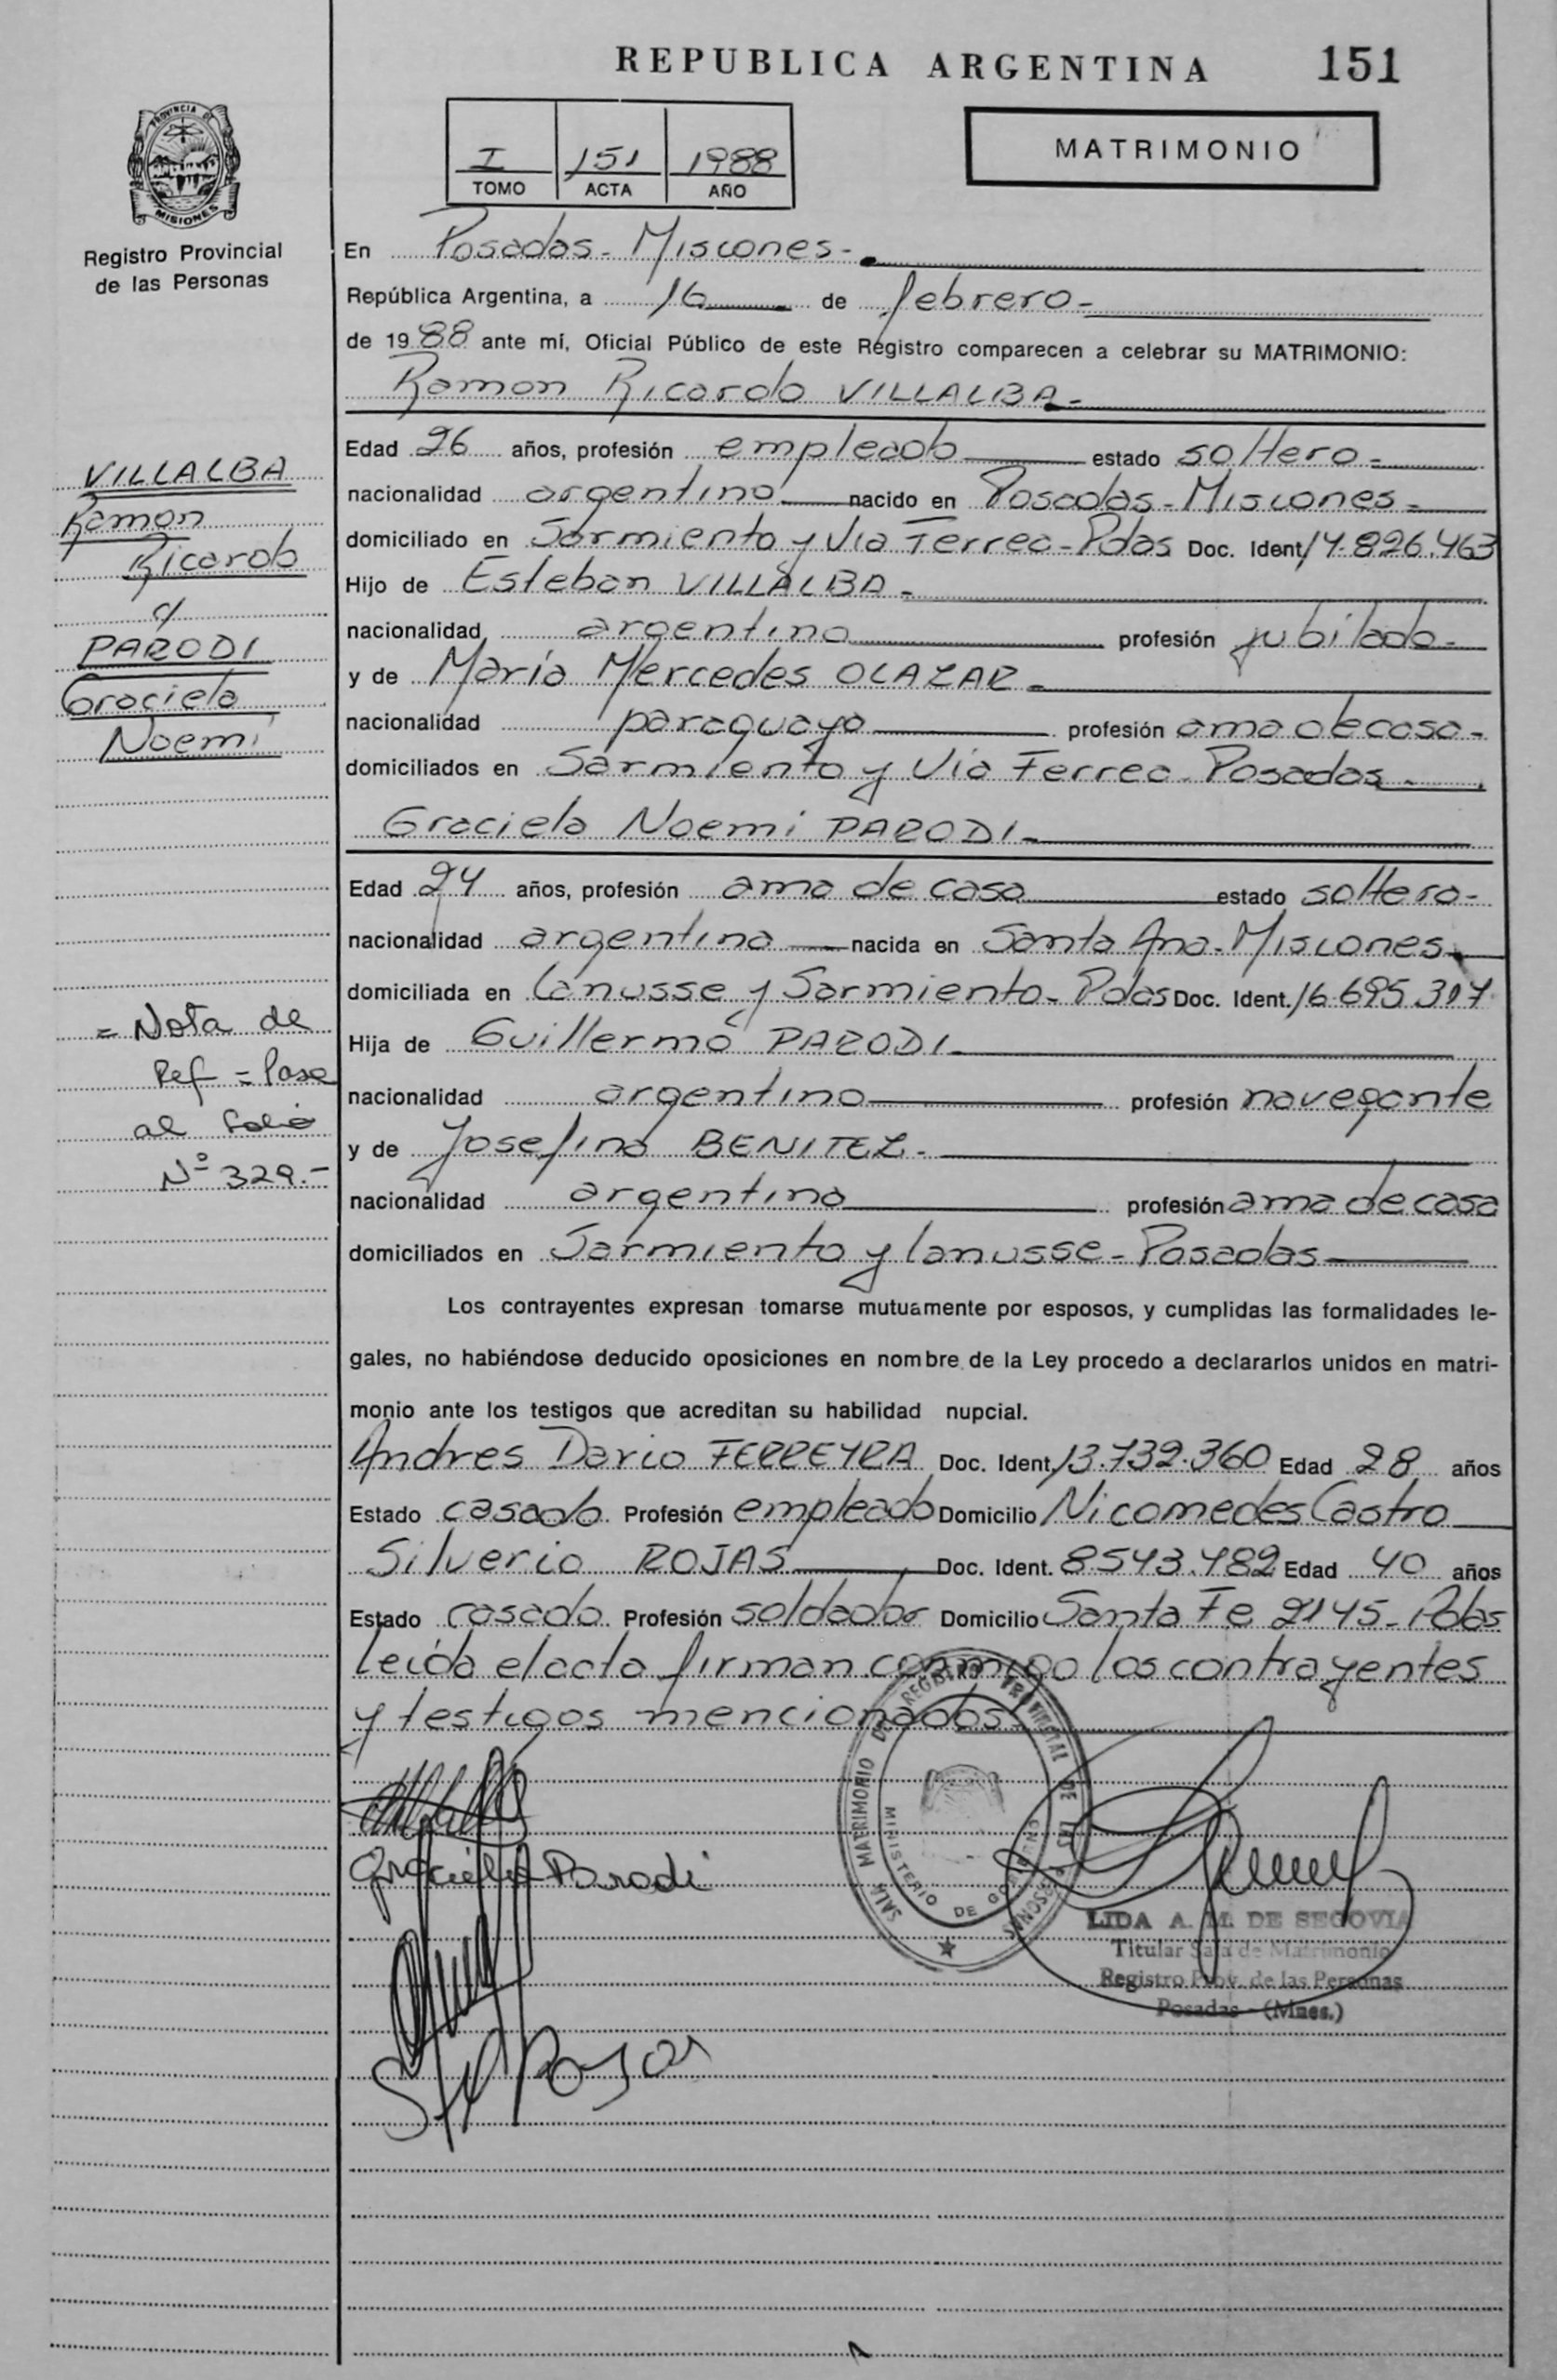 REPUBLICA ARGENTINA 151
PROVINCIA DE
MISIONES
Registro Provincial
de las Personas
I 151 1988
TOMO ACTA AÑO
MATRIMONIO
En Posadas - Misiones -
República Argentina, a 16 de febrero -
de 1988 ante mí, Oficial Público de este Registro comparecen a celebrar su MATRIMONIO:
Ramon Ricardo VILLALBA -
Edad 26 años, profesión empleado estado soltero -
nacionalidad argentino nacido en Posadas - Misiones -
domiciliado en Sarmiento y Via Ferrea - Pdas Doc. Ident 14.826.463
Hijo de Esteban VILLALBA -
nacionalidad argentino profesión jubilado -
y de María Mercedes OLAZAR -
nacionalidad paraguaya profesión ama de casa -
domiciliados en Sarmiento y Via Ferrea - Posadas -
Graciela Noemi PARODI -
Edad 24 años, profesión ama de casa estado soltera -
nacionalidad argentina nacida en Santa Ana - Misiones -
domiciliada en Lanusse y Sarmiento - Pdas Doc. Ident. 16.695.317
Hija de Guillermo PARODI -
nacionalidad argentino profesión navegante
y de Josefina BENITEZ -
nacionalidad argentina profesión ama de casa
domiciliados en Sarmiento y Lanusse - Posadas
Los contrayentes expresan tomarse mutuamente por esposos, y cumplidas las formalidades le-
gales, no habiéndose deducido oposiciones en nombre de la Ley procedo a declararlos unidos en matri-
monio ante los testigos que acreditan su habilidad nupcial.
Andres Dario FERREYRA Doc. Ident. 13.732.360 Edad 28 años
Estado casado Profesión empleado Domicilio Nicomedes Castro
Silverio ROJAS Doc. Ident. 8543.482 Edad 40 años
Estado casado Profesión soldador Domicilio Santa Fe 2145 - Pdas
Leida el acta firman conmigo los contrayentes
y testigos mencionados
VILLALBA
Ramon
Ricardo
c/
PARODI
Graciela
Noemi
= Nota de
Ref = Pase
al folio
Nº 329.-
Graciela Parodi
Rojas
SALA MATRIMONIO DE REGISTRO PROVINCIAL DE LAS PERSONAS
MINISTERIO DE GOBIERNO
LIDA A. M. DE SEGOVIA
Titular Sala de Matrimonio
Registro Prov. de las Personas
Posadas - (Mnes.)